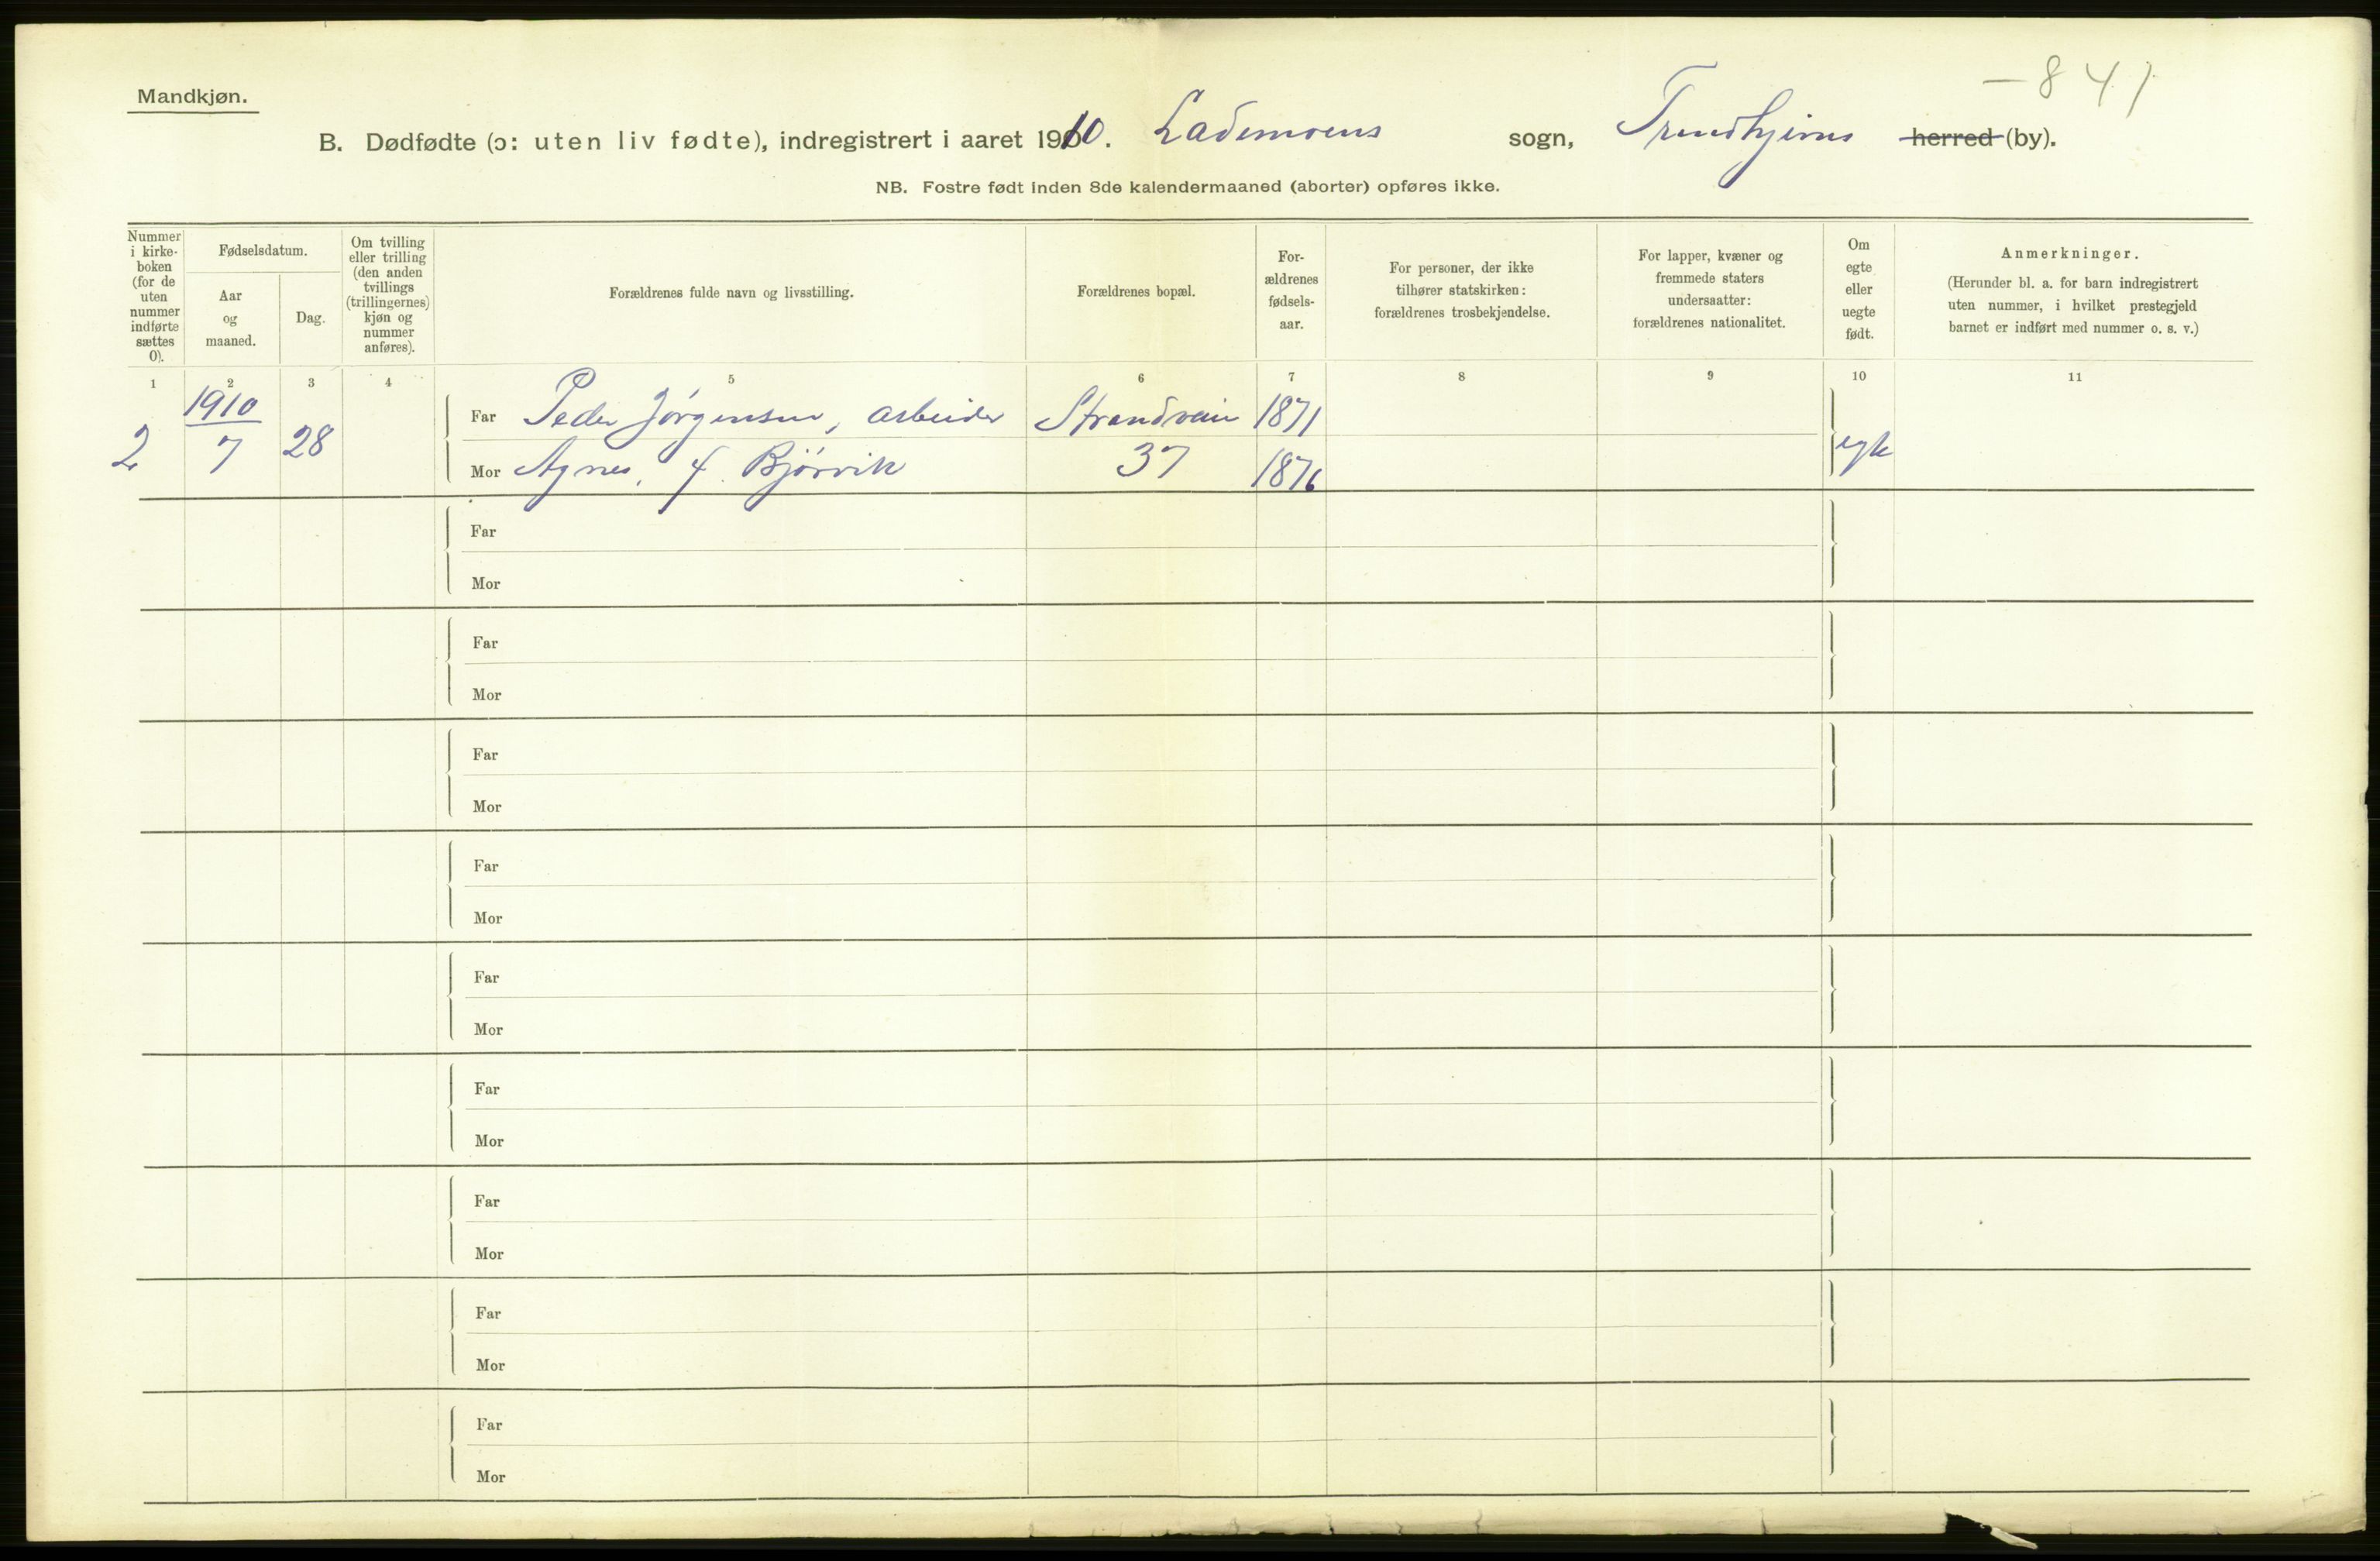 — 841
Mandkjøn.
B. Dødfødte (ɔ: uten liv fødte), indregistrert i aaret 1910. Lademoens sogn, Trondhjems herred (by).
NB. Fostre født inden 8de kalendermaaned (aborter) opføres ikke.
Nummer i kirke-boken (for de uten nummer indførte sættes 0).
Fødselsdatum.
Aar og maaned.
Dag.
Om tvilling eller trilling (den anden tvillings (trillingernes) kjøn og nummer anføres).
Forældrenes fulde navn og livsstilling.
Forældrenes bopæl.
For-ældrenes fødsels-aar.
For personer, der ikke tilhører statskirken: forældrenes trosbekjendelse.
For lapper, kvæner og fremmede staters undersaatter: forældrenes nationalitet.
Om egte eller uegte født.
Anmerkninger.
(Herunder bl. a. for barn indregistrert uten nummer, i hvilket prestegjeld barnet er indført med nummer o. s. v.)
1 2 3 4 5 6 7 8 9 10 11
1910
Far Peder Jörgensen, arbeider Strandveien 1871
2 7 28 egte
Mor Agnes, f. Björvik 37 1876
Far
Mor
Far
Mor
Far
Mor
Far
Mor
Far
Mor
Far
Mor
Far
Mor
Far
Mor
Far
Mor